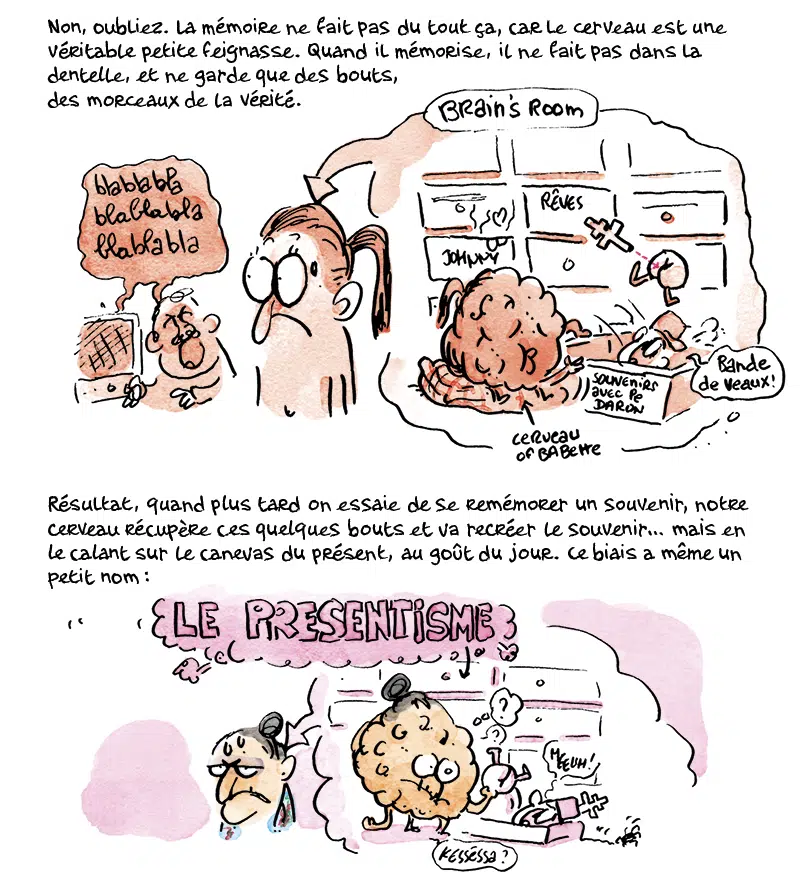 Non, oubliez. La mémoire ne fait pas du tout ça, car le cerveau est une
véritable petite feignasse. Quand il mémorise, il ne fait pas dans la
dentelle, et ne garde que des bouts,
des morceaux de la vérité.
BRain's Room
blablabla
blablabla
blablabla
RÊVES
JOHNNY
SOUVENIRS
avec Pe
DARON
Bande
de veaux!
cerveau
of BABette
Résultat, quand plus tard on essaie de se remémorer un souvenir, notre
cerveau récupère ces quelques bouts et va recréer le souvenir... mais en
le calant sur le canevas du présent, au goût du jour. Ce biais a même un
petit nom :
LE PRESENTISME
?
MEEUH!
Kesséssa ?